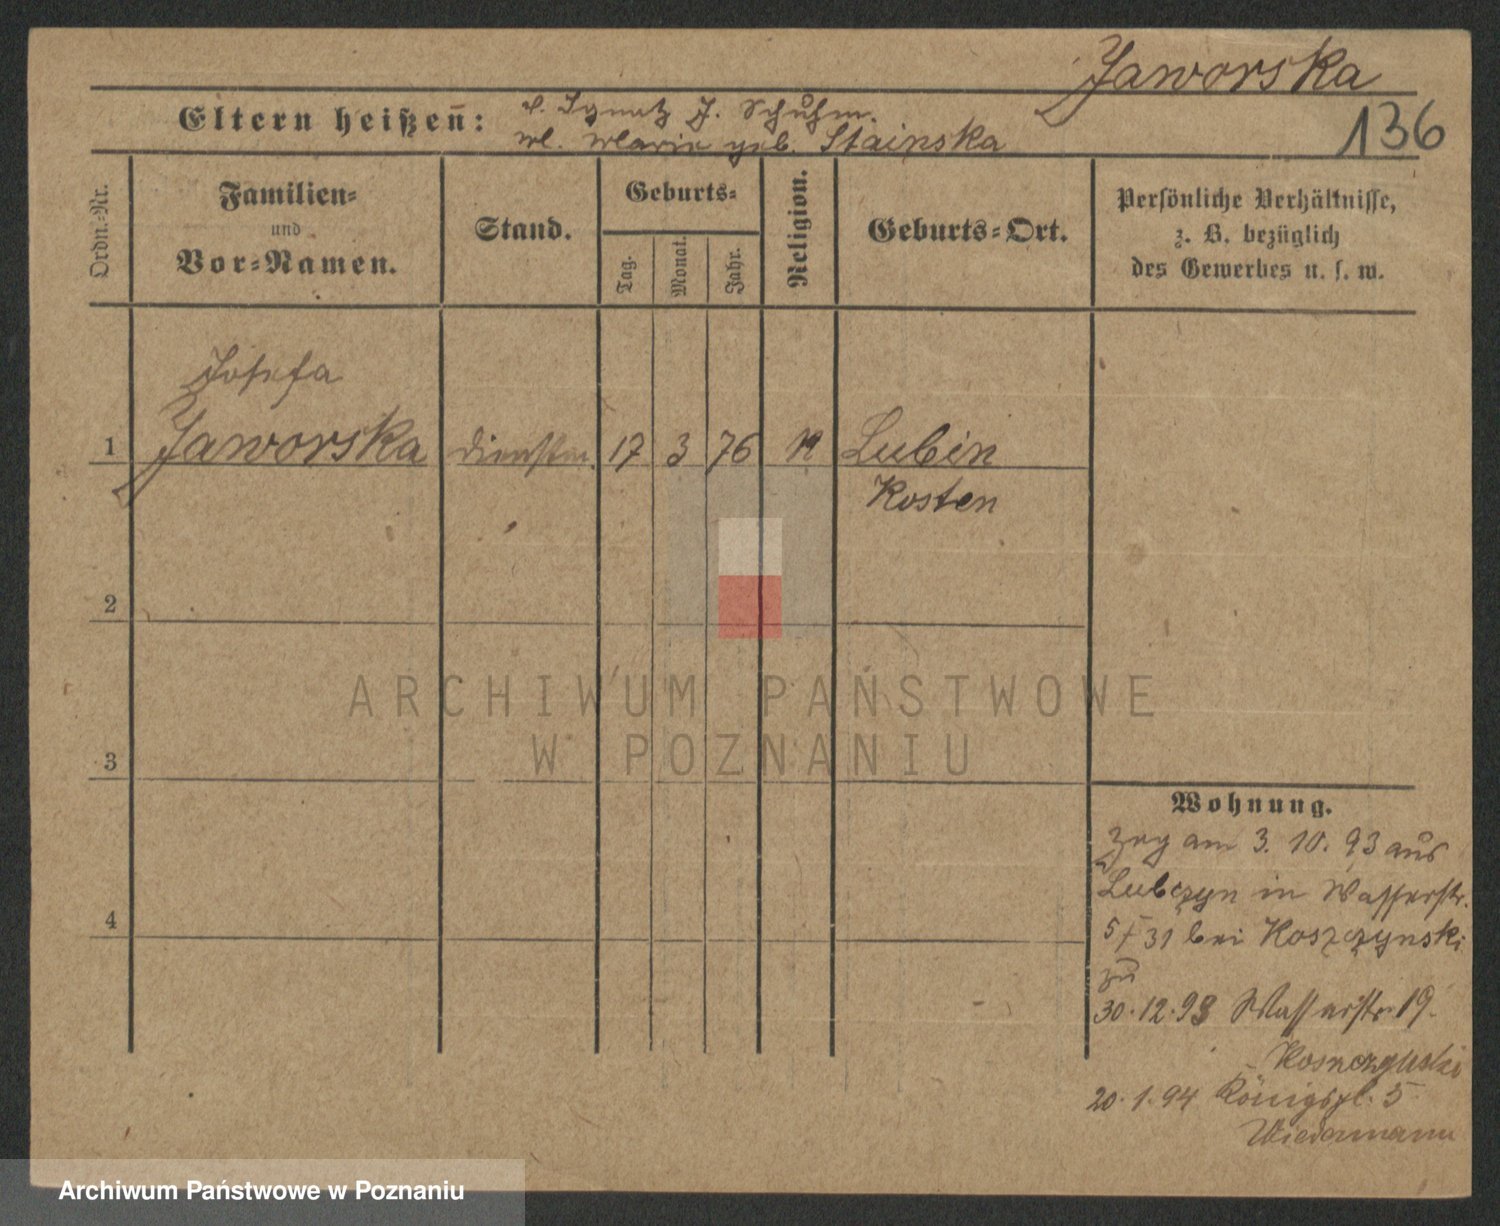 Jaworska
136
Eltern heißen: v. Ignatz J. Schuhm.
M. Marie geb. Stainska
Ordn.-Nr.
Familien-
und
Vor-Namen.
Stand.
Geburts-
Tag.
Monat.
Jahr.
Religion.
Geburts-Ort.
Persönliche Verhältnisse,
z. B. bezüglich
des Gewerbes u. s. w.
Josefa
1 Jaworska 17 3 76 K Lubin
Kosten
2
3
4
Wohnung.
Zog am 3. 10. 93 aus
Lubczyn in Wasserstr.
31 bei Koszczynski
zu
30.12.93 Wasserstr. 19.
Koszczynski
20.1.94 Königspl. 5
Wiedermann
ARCHIWUM PAŃSTWOWE
W POZNANIU
Archiwum Państwowe w Poznaniu